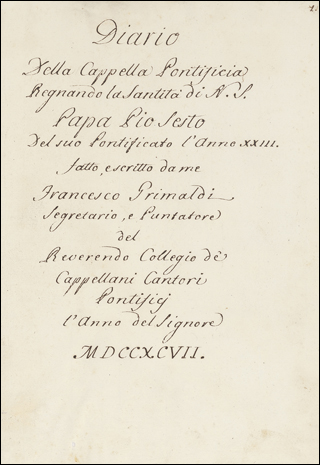 1.
Diario
Della Cappella Pontificia
Regnando la Santità di N. S.
Papa Pio Sesto
Del suo Pontificato l'Anno XXIII.
fatto, e scritto da me
Francesco Grimaldi
Segretario, e Puntatore
del
Reverendo Collegio dè
Cappellani Cantori
Pontificj
l'Anno del Signore
MDCCXCVII.